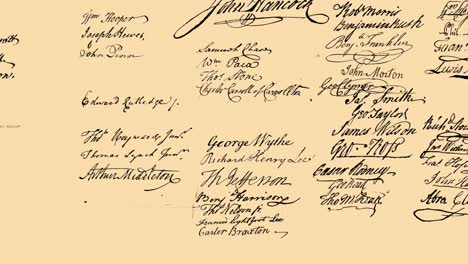 Wm Hooper
Joseph Hewes,
John Penn
Edward Rutledge /.
Thos Heyward Junr.
Thomas Lynch Junr.
Arthur Middleton
John Hancock
Samuel Chase
Wm Paca
Thos Stone
Charles Carroll of Carrollton
George Wythe
Richard Henry Lee
Th Jefferson
Benj Harrison
Thos Nelson jr.
Francis Lightfoot Lee
Carter Braxton
Robt Morris
Benjamin Rush
Benj Franklin
John Morton
Geo Clymer
Jas Smith
Geo. Taylor
James Wilson
Geo. Ross
Caesar Rodney
Geo Read
Tho M:Kean
Lewis
John
Abra Cl